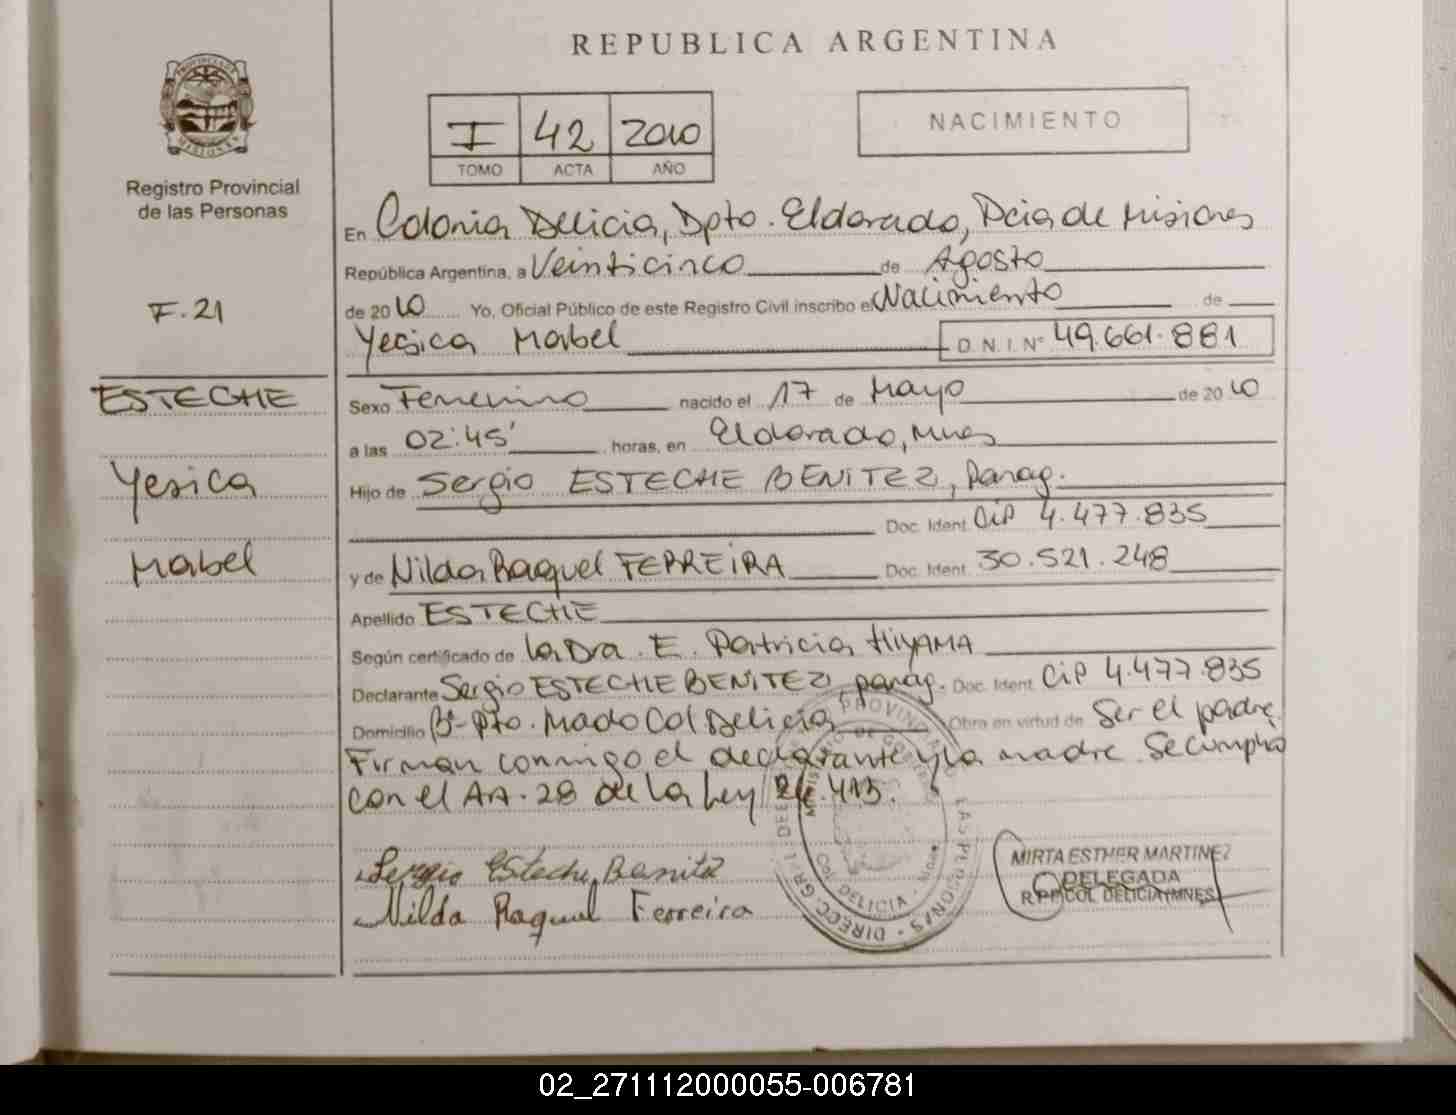 REPUBLICA ARGENTINA
PROVINCIA DE
MISIONES
Registro Provincial
de las Personas
I 42 2010
TOMO ACTA AÑO
NACIMIENTO
En Colonia Delicia, Dpto. Eldorado, Pcia de Misiones
República Argentina, a Veinticinco de Agosto
F. 21
de 2010 Yo, Oficial Público de este Registro Civil inscribo el Nacimiento de
Yesica Mabel D.N.I. Nº 49.661.881
ESTECHE
Sexo Femenino nacido el 17 de Mayo de 2010
a las 02:45' horas, en Eldorado, Mnes
Yesica
Hijo de Sergio ESTECHE BENITEZ, Parag.
Doc. Ident. CIP 4.477.835
Mabel
y de Nilda Raquel FERREIRA Doc. Ident. 30.521.248
Apellido ESTECHE
Según certificado de la Dra. E. Patricia HIYAMA
Declarante Sergio ESTECHE BENITEZ, parag. Doc. Ident. CIP 4.477.835
Domicilio Bº Pto. Mado Col Delicia Obra en virtud de Ser el padre.
Firman conmigo el declarante y la madre. Se cumplio
con el Art. 28 de la Ley 26.413.
Sergio Esteche Benitez
Nilda Raquel Ferreira
MIRTA ESTHER MARTINEZ
DELEGADA
R.P.P. COL DELICIA (MNES)
02_271112000055-006781